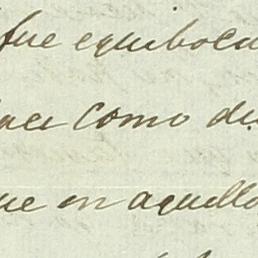 fue equiboca
como de
ue en aquello